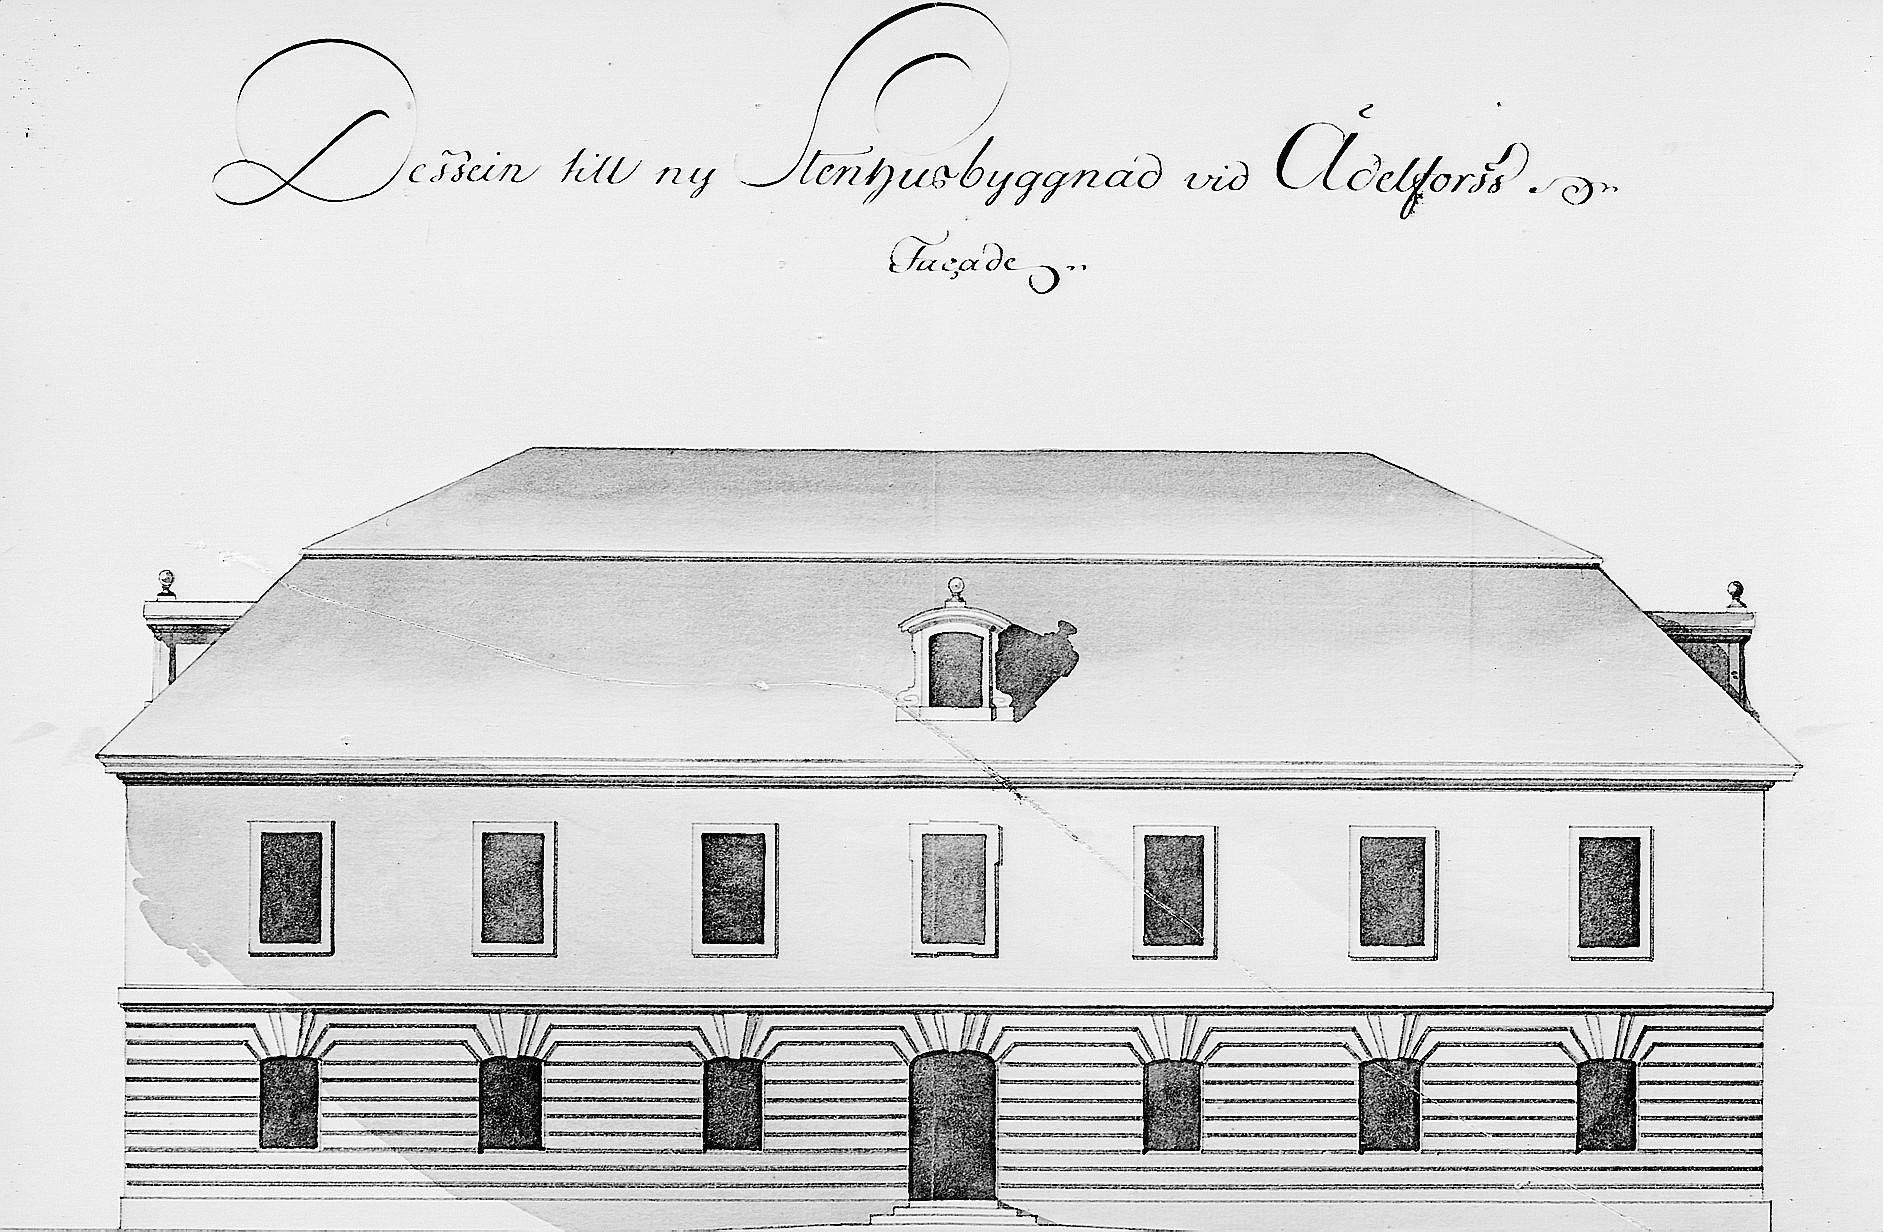 Dessein till ny Stenhusbyggnad vid Ädelforss
Façade